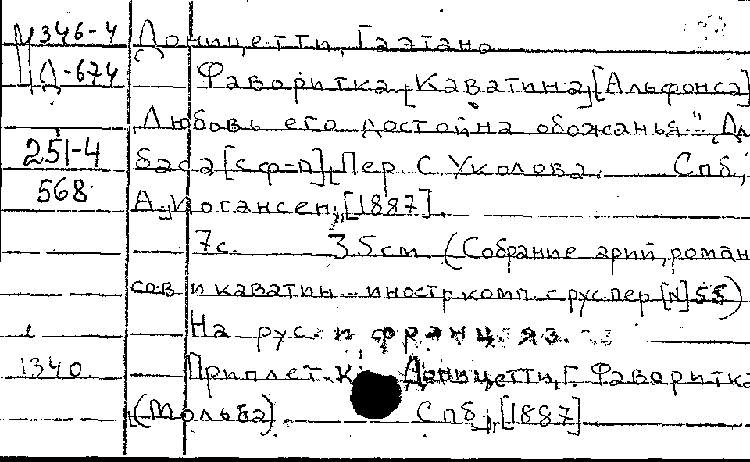 М346-4 Доницетти, Гаэтано
Д-674 Фаворитка, Каватина, [Альфонса]
„Любовь его достойна обожанья". Дл
251-4 баса [с ф-п], Пер. С. Уколова. Спб.,
568 А. Иогансен, [1887].
7с. 35см (Собрание арий, роман
сов и каватин иностр. комп. с рус. пер. [N] 55)
На рус. и франц. яз.
1340 Приплет. к: Доницетти, Г. Фаворитка
(Мольба). Спб., [1887]